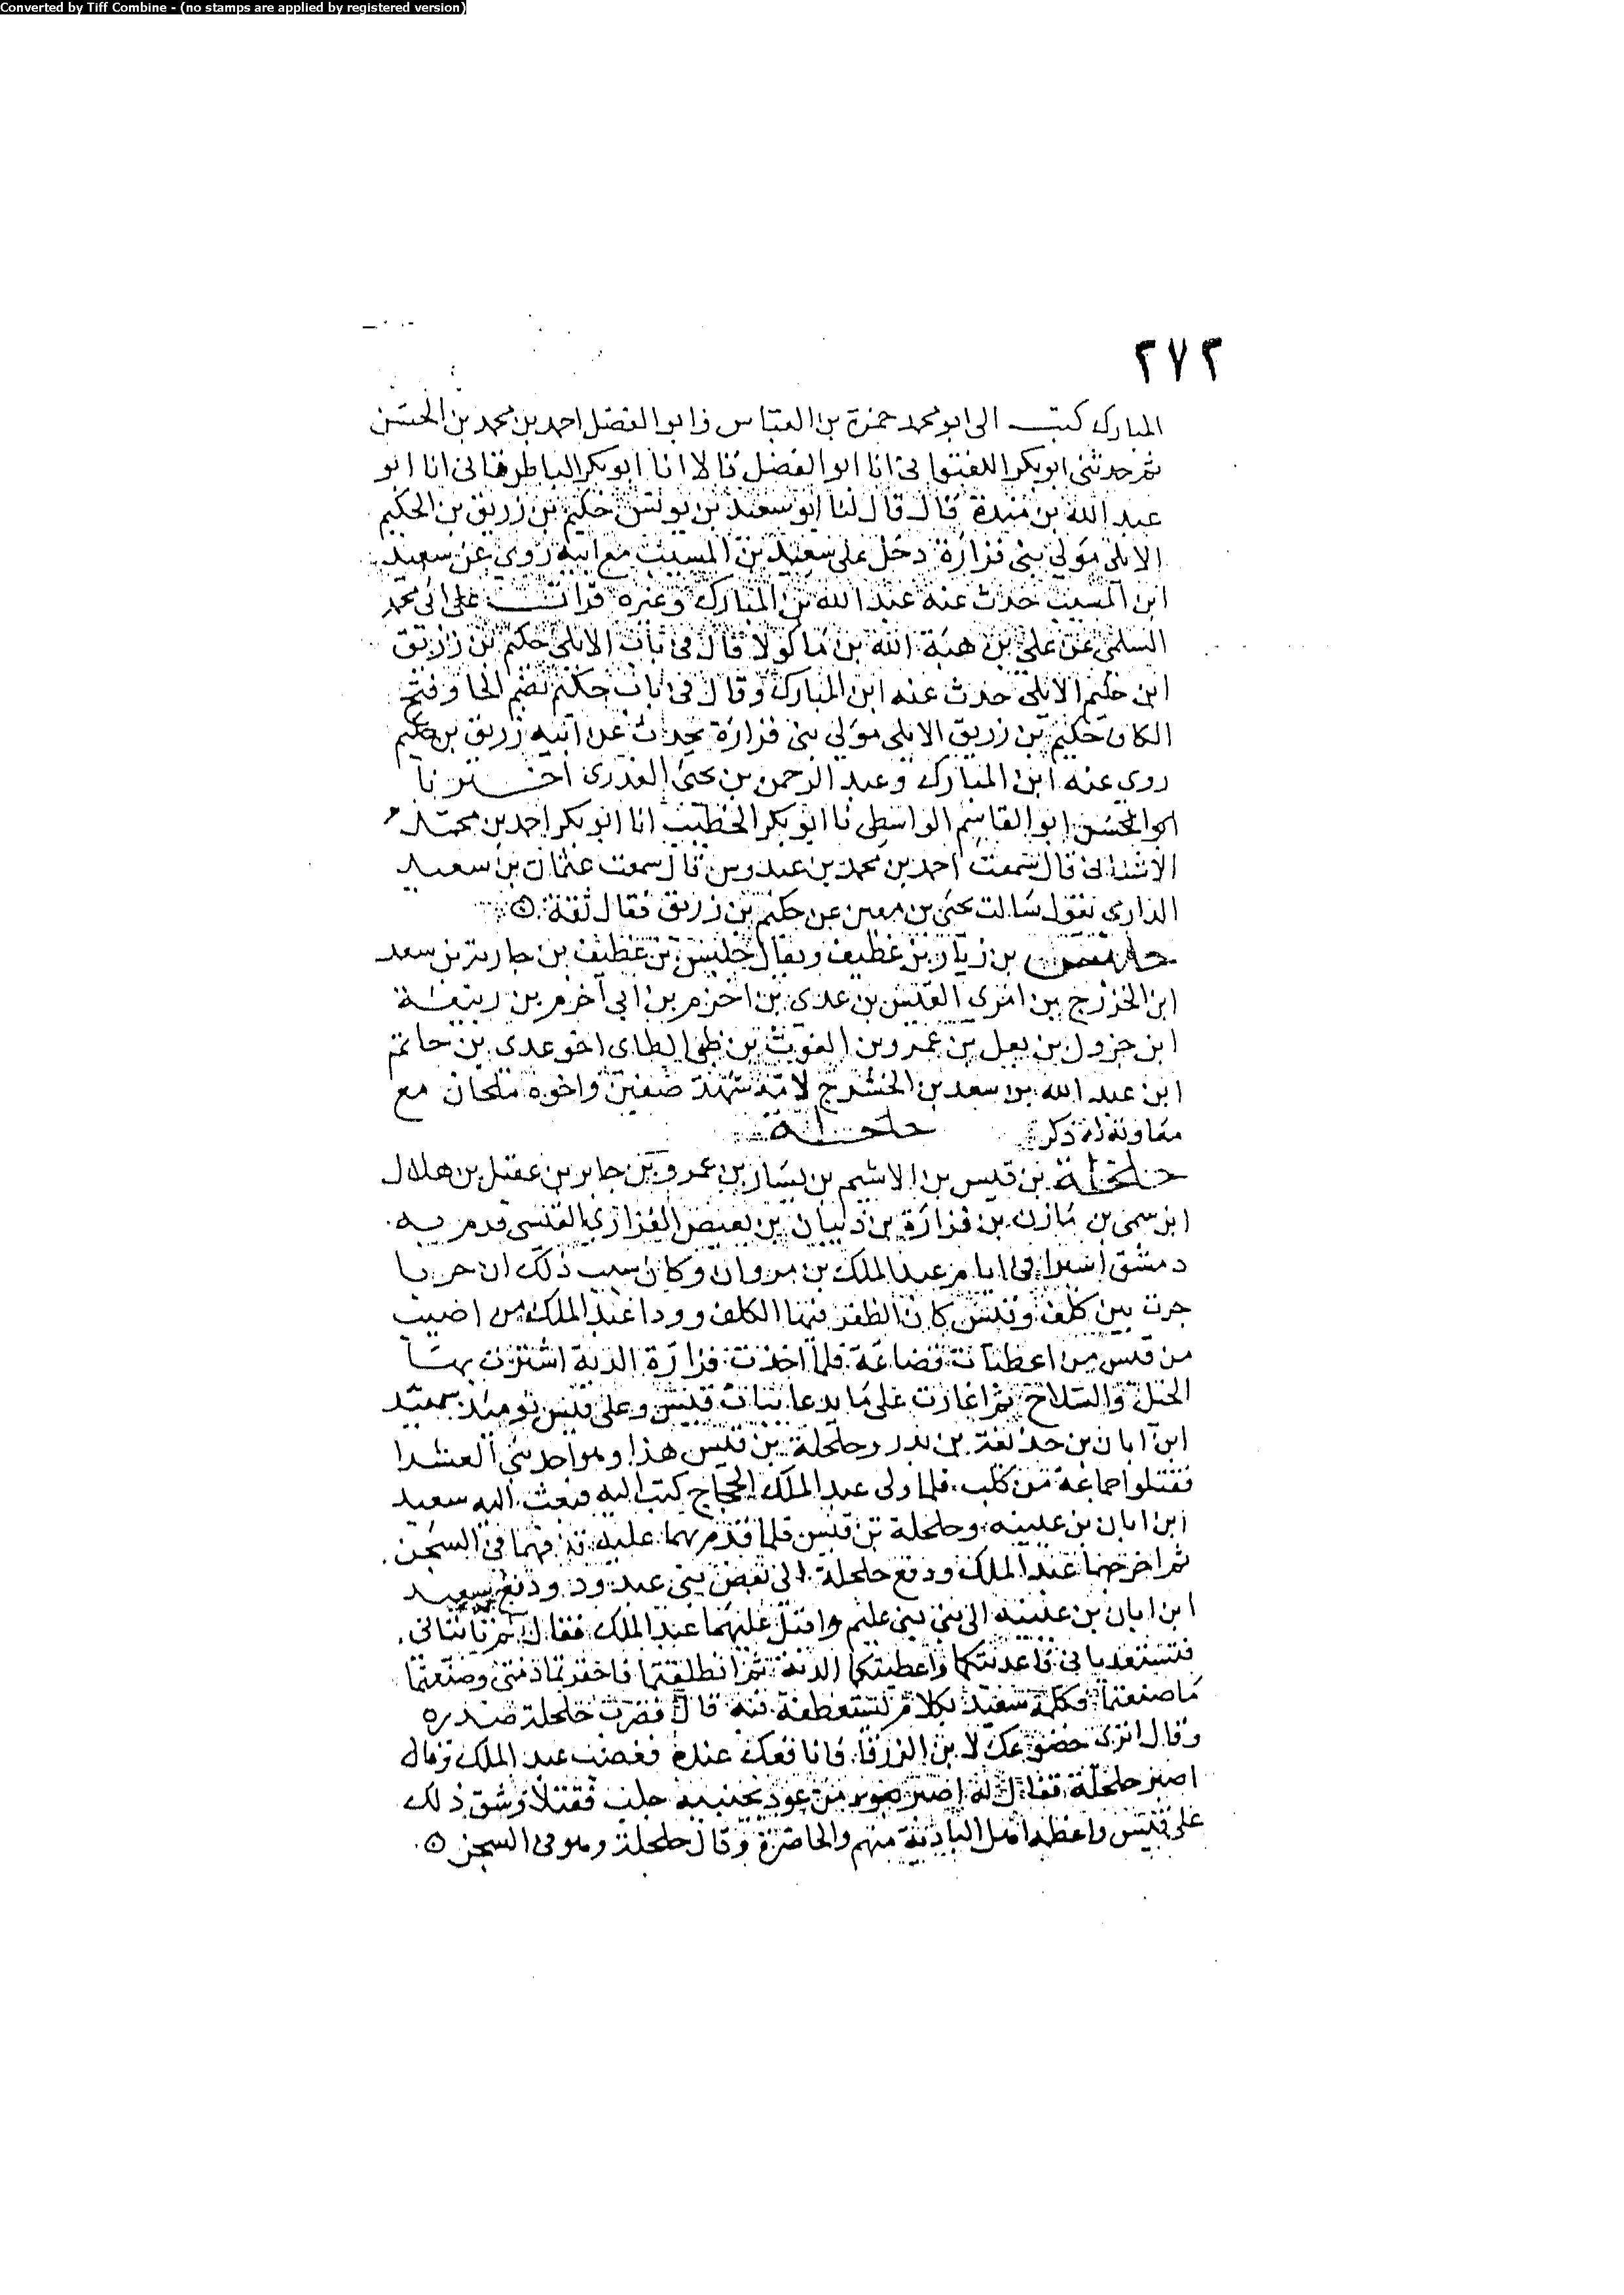 Converted by Tiff Combine - (no stamps are applied by registered version)
٢٧٢
المبارك كتب الى ابو محمد حمزة بن العباس وابو الفضل احمد بن محمد بن الحسن
ثم حدثنى ابو بكر اللفتوانى انا ابو الفضل قالا انا ابو بكر الباطرقانى انا ابو
عبد الله بن مندة قال قال لنا ابو سعيد بن يونس حكيم بن زريق بن الحكيم
الايلى مولى بنى فزارة دخل على سعيد بن المسيب مع ابيه روى عن سعيد
ابن المسيب حدث عنه عبد الله بن المبارك وغيره قرات على ابى محمد
السلمى عن على بن هبة الله بن ماكولا قال فى باب الايلى حكيم بن زريق
ابن حكيم الايلى حدث عنه ابن المبارك وقال فى باب حكيم بضم الحا وفتح
الكاف حكيم بن زريق الايلى مولى بنى فزارة يحدث عن ابيه زريق بن حكيم
روى عنه ابن المبارك وعبد الرحمن بن يحيى العذرى اخبرنا
ابو الحسن ابو القاسم الواسطى نا ابو بكر الخطيب انا ابو بكر احمد بن محمد
الاشنانى قال سمعت احمد بن محمد بن عبدوس قال سمعت عثمان بن سعيد
الدارمى يقول سالت يحيى بن معين عن حكيم بن زريق فقال ثقة
حلبس بن زياد بن غطيف ويقال حلبس بن غطيف بن حارثة بن سعد
ابن الخزرج بن امرى القيس بن عدى بن اخزم بن ابى اخزم بن ربيعة
ابن جرول بن ثعل بن عمرو بن الغوث بن طى الطاى اخو عدى بن حاتم
ابن عبد الله بن سعد بن الحشرج لامه شهد صفين واخوه ملحان مع
معاوية له ذكر حلحلة
حلحلة بن قيس بن الاشيم بن يسار بن عمرو بن جابر بن عقيل بن هلال
ابن سمى بن مازن بن فزارة بن ذبيان بن بغيض الفزارى القيسى قدم به
دمشق اسيرا فى ايام عبد الملك بن مروان وكان سبب ذلك ان حربا
جرت بين كلب وقيس كان الظفر فيها لكلب وودا عبد الملك من اصيب
من قيس من اعطيات قضاعة فلما اخذت فزارة الدية اشترت بها
الخيل والسلاح ثم اغارت على ما يدعا بنات قيس وعلى قيس يوميذ سعيد
ابن ابان بن حذيفة بن بدر وحلحلة بن قيس هذا وهو احد بنى العشرا
فقتلوا جماعة من كلب فلما ولى عبد الملك الحجاج كتب اليه فبعث اليه سعيد
ابن ابان بن عيينه وحلحلة بن قيس فلما قدم بهما عليه قذفهما فى السجن
ثم اخرجهما عبد الملك ودفع حلحلة الى بعض بنى عبد ود ودفع سعيد
ابن ابان بن عيينه الى بنى عليم واقبل عليهما عبد الملك فقال الم تاتيانى
تستعديانى فاعديتكما واعطيتكما الدية ثم انطلقتما فاخفرتما ذمتى وصنعتما
ما صنعتما فكلمه سعيد بكلام يستعطفه فيه قال فضرب حلحلة صدره
وقال اترى خضوعك لابن الزرقا نافعك عنده فغضب عبد الملك وقال
اصبر حلحلة فقال له اصبر من عود بجنبيه جلب فقتلا وشق ذلك
على قيس واعظمه اهل البادية منهم والحاضرة وقال حلحلة وهو فى السجن